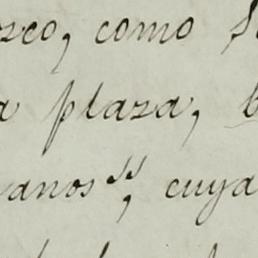 sco, como
a plaza,
anos", cuya